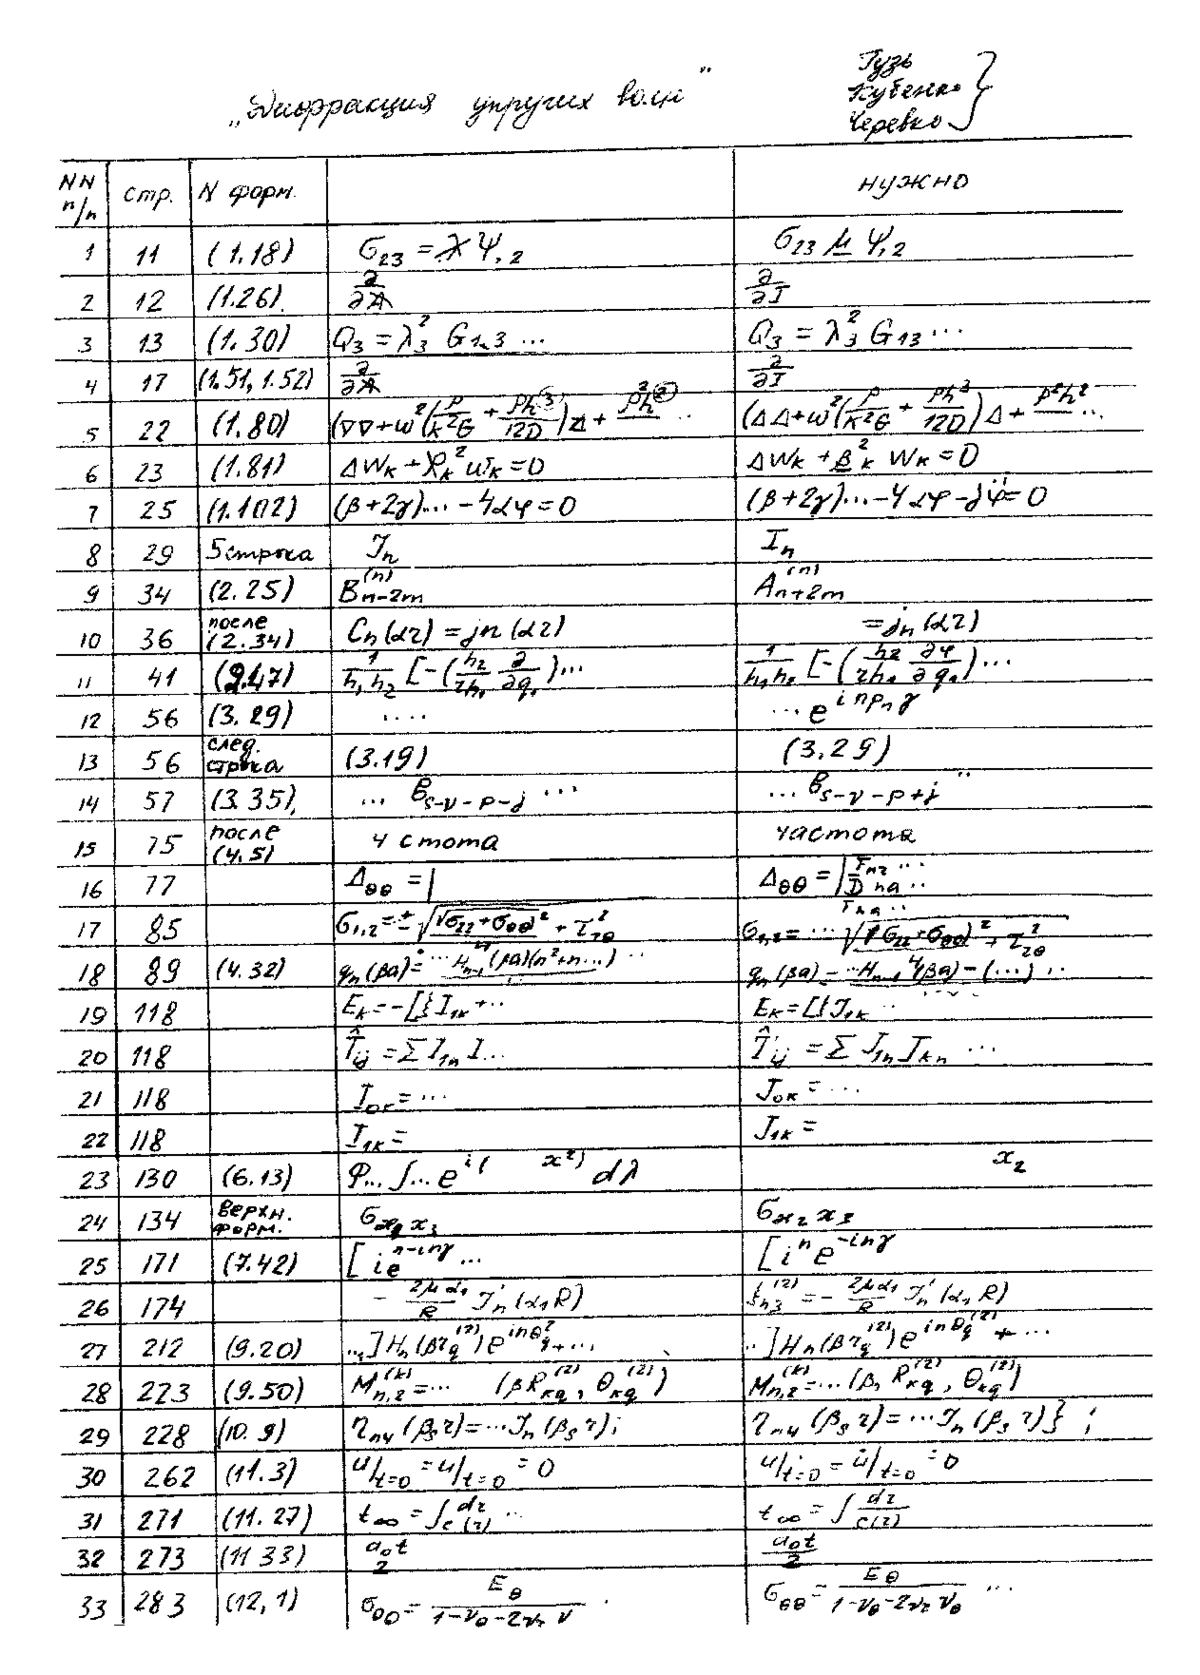 „Дифракция упругих волн"
Гузь
Кубенко
Черевко
NN п/п стр. N форм. нужно
1 11 (1.18) σ23 = λ Ψ,2 σ23 μ Ψ,2
2 12 (1.26). ∂/∂A ∂/∂I
3 13 (1.30) Q3 = λ3² G13 ... Q3 = λ3² G13 ...
4 17 (1.51, 1.52) ∂/∂A ∂/∂I
5 22 (1.80) (∇∇+ω²(ρ/k²G + ρh³/12D)Δ + ρh² ... (ΔΔ+ω²(ρ/k²G + ρh³/12D)Δ + ρ²h² ...
6 23 (1.81) ΔWk + ϰk² wk = 0 ΔWk + βk² Wk = 0
7 25 (1.102) (β+2γ)... - 4αφ = 0 (β+2γ)... - 4αφ - jφ̈ = 0
8 29 5 строка Jn In
9 34 (2.25) B(n)n-2m A(n)n+2m
10 36 после (2.34) Cn(αr) = jn(αr) = jn(αr)
11 41 (2.47) 1/h1h2 [-(h2/rh1 ∂/∂q1)... 1/h1h2 [-(h2/rh1 ∂φ/∂q1)...
12 56 (3.29) .... ... e^inpnγ
13 56 след. строка (3.19) (3.29)
14 57 (3.35), ... Bs-ν-p-j ... ... Bs-ν-p+j ..
15 75 после (4.5) ч стота частота
16 77 Δθθ = | Δθθ = |
17 85 σ1,2 = ± √(σrr+σθθ)² + τ²rθ σ1,2 = ... √(σrr+σθθ)² + τ²rθ
18 89 (4.32) qn(βa) = ... Hn-1(βa)(n²+n...) qn(βa) = ... Hn-1(βa) - (...) ..
19 118 Ek = -[{I1k + .. Ek = [{J1k ..
20 118 T̂ij = Σ I1n I... T̂ij = Σ J1n Jkn ...
21 118 Iок = ... Jок = ...
22 118 I1k = J1k =
23 130 (6.13) Φ... ∫... e^i( x²) dλ x2
24 134 верхн. форм. σx2 x3 σx2 x3
25 171 (7.42) [ie^n-inγ ... [i^n e^-inγ
26 174 - 2μα1/R Jn'(α1R) tn3(2) = - 2μα1/R Jn'(α1R)
27 212 (9.20) ...]Hn(βrq(2))e^inθq² + ... ..]Hn(βrq(2))e^inθq(2) + ...
28 223 (9.50) Mn,2(k) = ... (βRkq(2), θkq(2)) Mn,2(k) = ... (β, Rkq(2), θkq(2))
29 228 (10.9) ηn4(βsr) = ... Jn(βsr); ηn4(βsr) = ... Jn(βsr)};
30 262 (11.3) u/t=0 = u/t=0 = 0 u/t=0 = u̇/t=0 = 0
31 271 (11.27) t∞ = ∫ dr/c(r) ... t∞ = ∫ dr/c(r)
32 273 (11 33) a0t/2 a0t/2
33 283 (12,1) σθθ = Eθ/1-νθ-2νr ν . σθθ = Eθ/1-νθ-2νr νθ ...